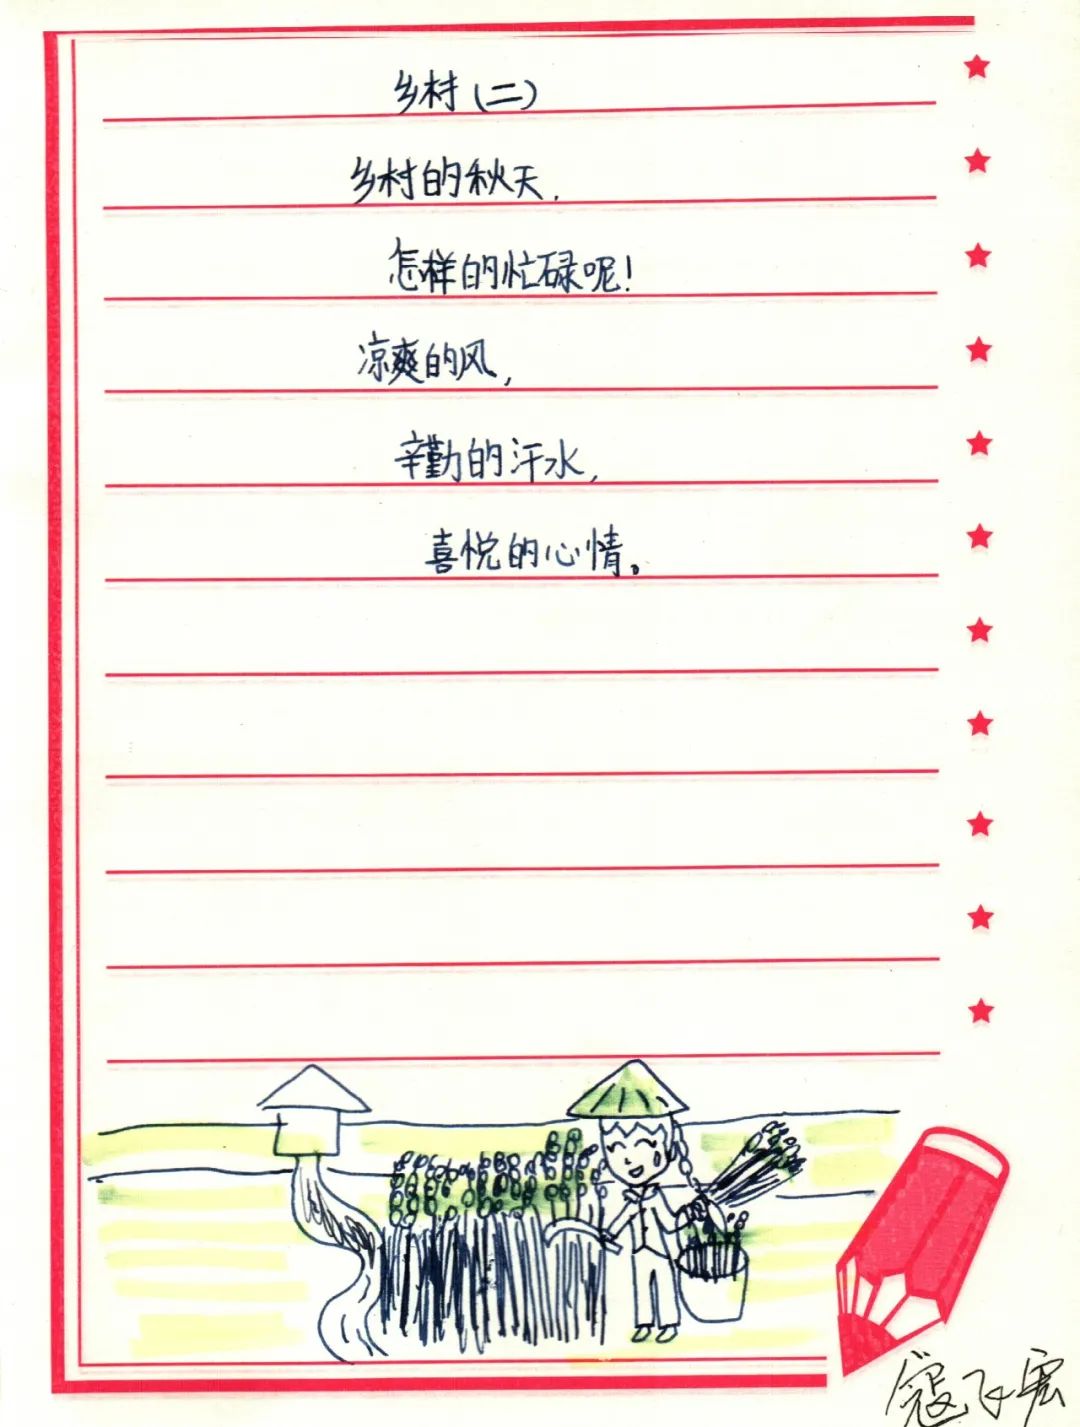 乡村（二）
乡村的秋天，
怎样的忙碌呢！
凉爽的风，
辛勤的汗水，
喜悦的心情。
寇飞宏